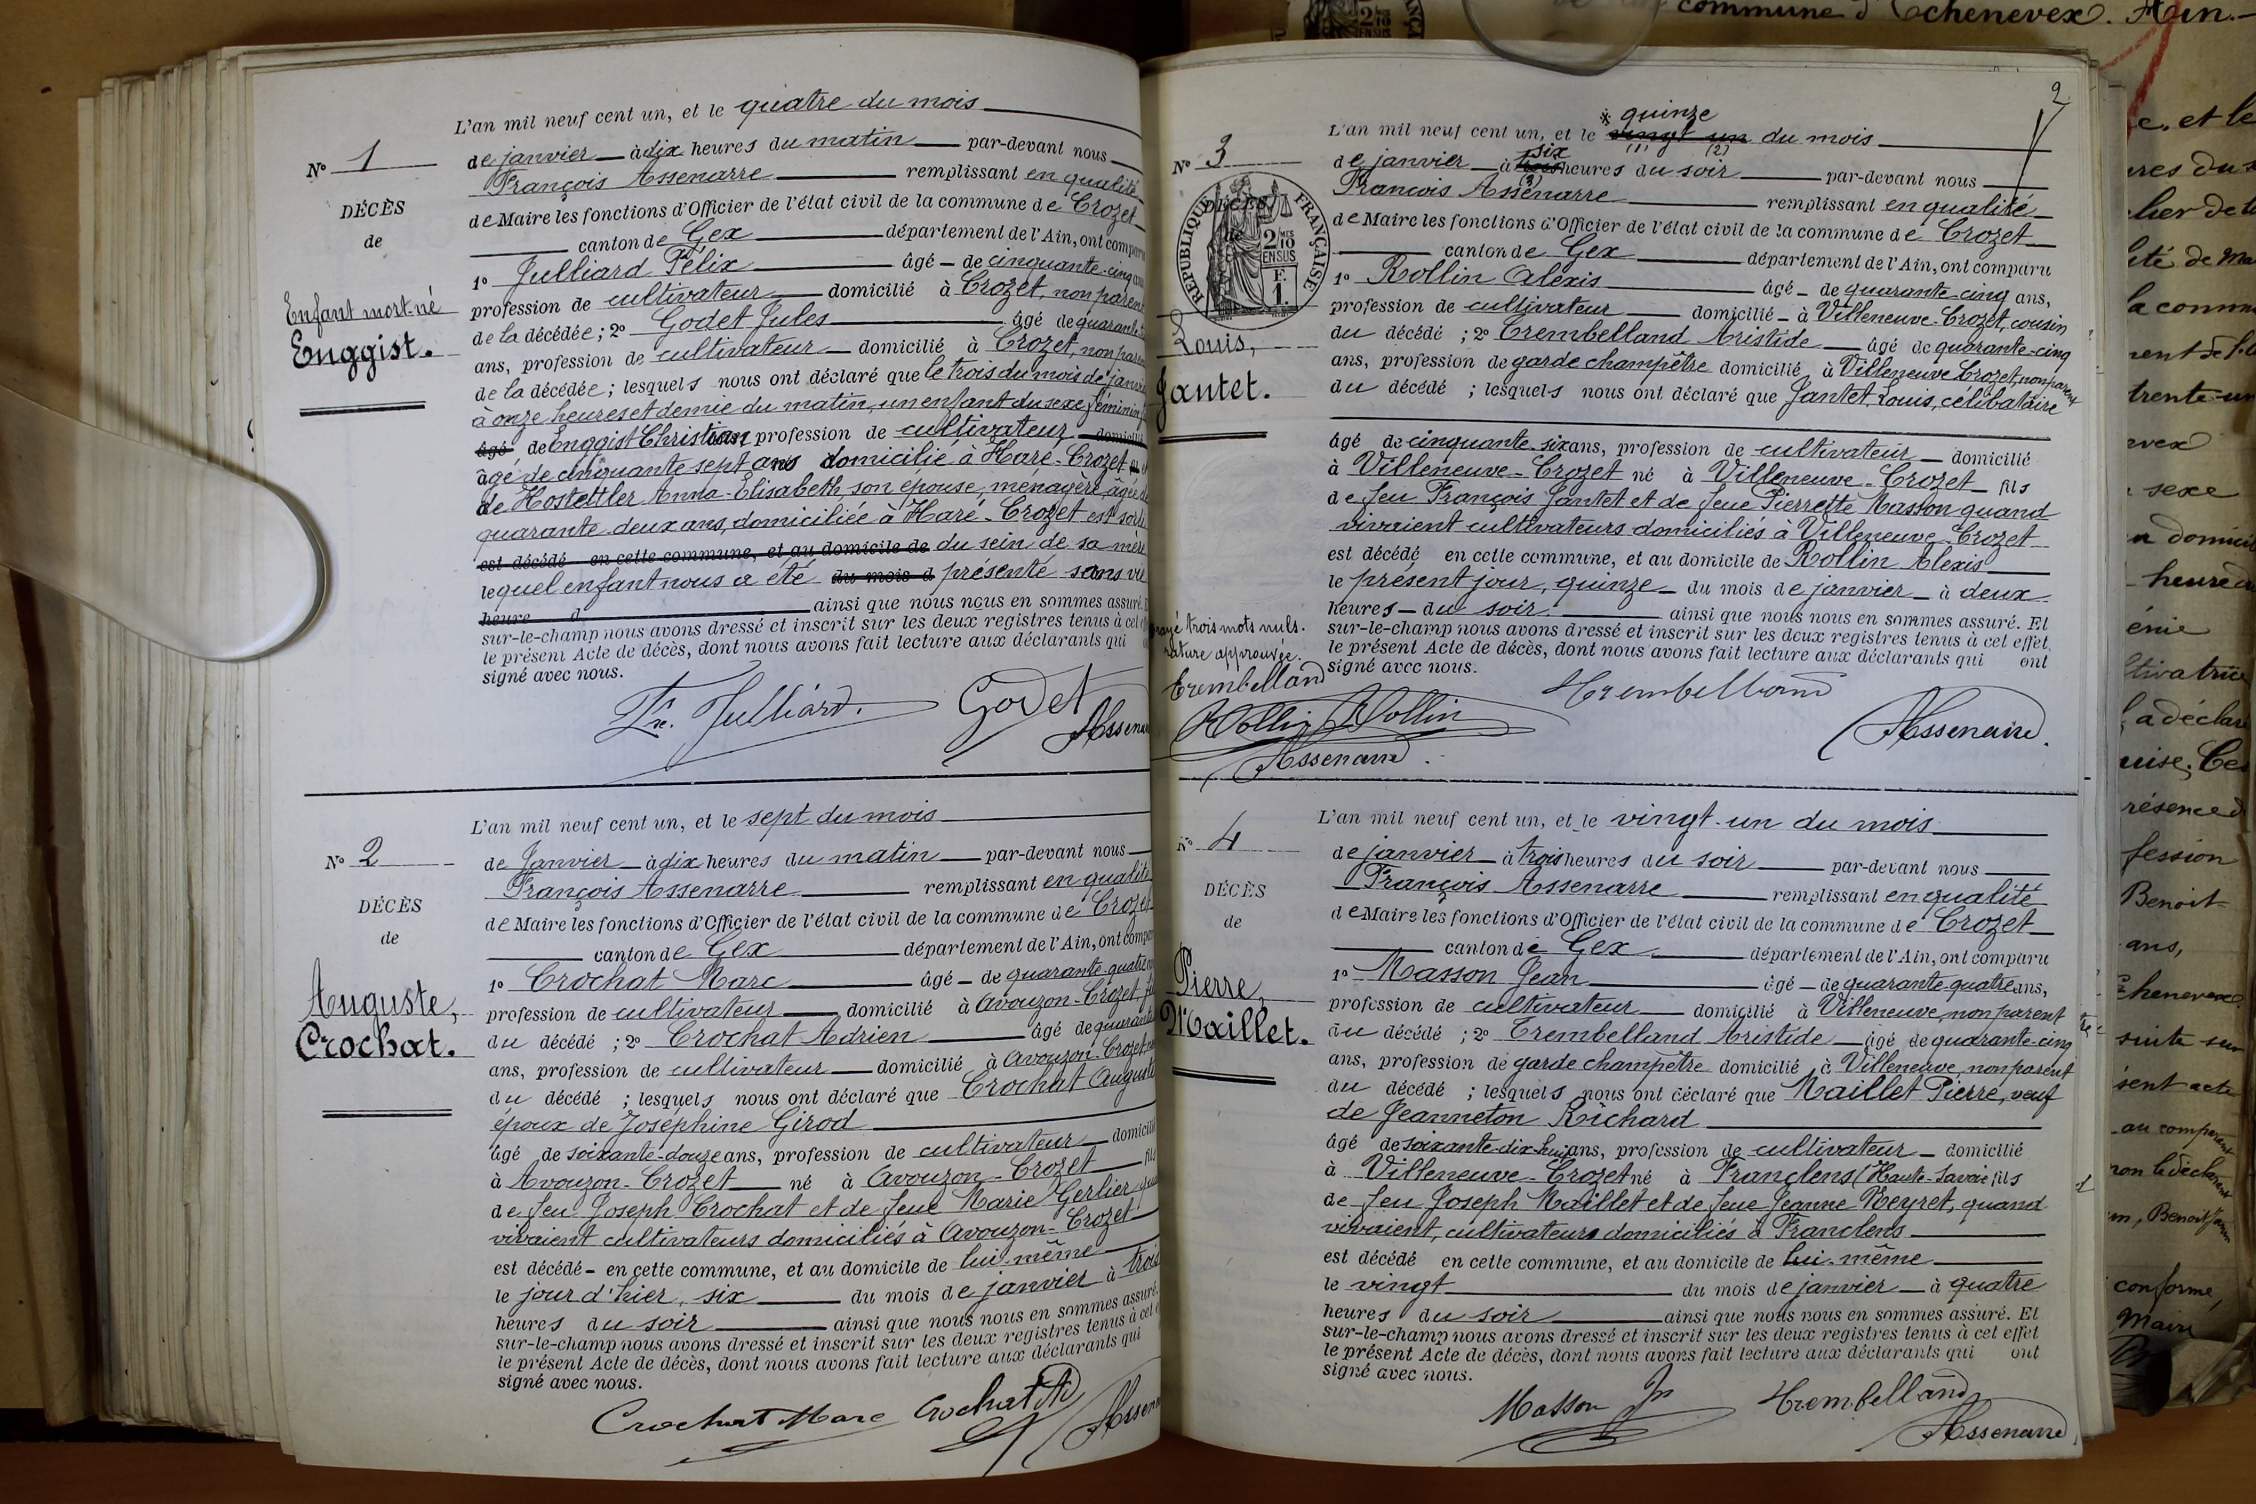 L'an mil neuf cent un, et le quatre du mois
N° 1
de janvier à dix heures du matin par-devant nous
François Assenarre remplissant en qualité
DÉCÈS
de Maire les fonctions d'Officier de l'état civil de la commune de Crozet
de
canton de Gex département de l'Ain, ont comparu
1° Julliard Félix âgé de cinquante-cinq ans
Enfant mort-né
profession de cultivateur domicilié à Crozet, non parent
Enggist.
de la décédée ; 2° Godet Jules âgé de quarante
ans, profession de cultivateur domicilié à Crozet, non parent
de la décédée ; lesquels nous ont déclaré que le trois du mois de janvier
à onze heures et demie du matin, un enfant du sexe féminin
âgé de Enggist Christian profession de cultivateur domicilié
âgé de cinquante sept ans domicilié à Haré-Crozet et
de Hostettler Anna-Elisabeth, son épouse, ménagère, âgée de
quarante-deux ans, domiciliée à Haré-Crozet est sorti
est décédé en cette commune, et au domicile de du sein de sa mère
lequel enfant nous a été du mois d présenté sans vie
heure d ainsi que nous nous en sommes assuré. Et
sur-le-champ nous avons dressé et inscrit sur les deux registres tenus à cet
le présent Acte de décès, dont nous avons fait lecture aux déclarants qui
signé avec nous.
Fx. Julliard. Godet
Assenarre
L'an mil neuf cent un, et le sept du mois
N° 2
de Janvier à dix heures du matin par-devant nous
François Assenarre remplissant en qualité
DÉCÈS
de Maire les fonctions d'Officier de l'état civil de la commune de Crozet
de
canton de Gex département de l'Ain, ont comparu
1° Crochat Marc âgé de quarante-quatre
Auguste,
profession de cultivateur domicilié à Avouzon-Crozet, fils
Crochat.
du décédé ; 2° Crochat Adrien âgé de quarante
ans, profession de cultivateur domicilié à Avouzon-Crozet
du décédé ; lesquels nous ont déclaré que Crochat Auguste
époux de Joséphine Girod
âgé de soixante-douze ans, profession de cultivateur domicilié
à Avouzon-Crozet né à Avouzon-Crozet fils
de feu Joseph Crochat et de feue Marie Gerlier
vivaient cultivateurs domiciliés à Avouzon-Crozet
est décédé en cette commune, et au domicile de lui-même
le jour d'hier, six du mois de janvier à trois
heures du soir ainsi que nous nous en sommes assuré.
sur-le-champ nous avons dressé et inscrit sur les deux registres tenus à cet
le présent Acte de décès, dont nous avons fait lecture aux déclarants qui
signé avec nous.
Crochat Marc Crochat Ad
Assenarre
2
* quinze
L'an mil neuf cent un, et le vingt un du mois
(1) (2)
N° 3
six
de janvier à trois heures du soir par-devant nous
(3)
François Assenarre remplissant en qualité
DÉCÈS
RÉPUBLIQUE FRANÇAISE
2 MES
10
EN SUS
F.
1.
de Maire les fonctions d'Officier de l'état civil de la commune de Crozet
canton de Gex département de l'Ain, ont comparu
1° Rollin Alexis âgé de quarante-cinq ans,
profession de cultivateur domicilié à Villeneuve-Crozet, cousin
Louis,
du décédé ; 2° Trembelland Aristide âgé de quarante-cinq
ans, profession de garde champêtre domicilié à Villeneuve Crozet, non parent
Jantet.
du décédé ; lesquels nous ont déclaré que Jantet, Louis, célibataire
âgé de cinquante-six ans, profession de cultivateur domicilié
à Villeneuve-Crozet né à Villeneuve-Crozet fils
de feu François Jantet et de feue Pierrette Masson quand
vivaient cultivateurs domiciliés à Villeneuve-Crozet
est décédé en cette commune, et au domicile de Rollin Alexis
le présent jour, quinze du mois de janvier à deux
heures du soir ainsi que nous nous en sommes assuré. Et
sur-le-champ nous avons dressé et inscrit sur les deux registres tenus à cet effet
le présent Acte de décès, dont nous avons fait lecture aux déclarants qui ont
signé avec nous.
rayé trois mots nuls.
rature approuvée.
Trembelland
Rollin Rollin
Assenarre
Trembelland
Assenarre
L'an mil neuf cent un, et le vingt-un du mois
N° 4
de janvier à trois heures du soir par-devant nous
François Assenarre remplissant en qualité
DÉCÈS
de Maire les fonctions d'Officier de l'état civil de la commune de Crozet
de
canton de Gex département de l'Ain, ont comparu
1° Masson Jean âgé de quarante-quatre ans,
Pierre,
profession de cultivateur domicilié à Villeneuve, non parent
Maillet.
du décédé ; 2° Trembelland Aristide âgé de quarante-cinq
ans, profession de garde champêtre domicilié à Villeneuve, non parent
du décédé ; lesquels nous ont déclaré que Maillet Pierre, veuf
de Jeanneton Richard
âgé de soixante-dix-huit ans, profession de cultivateur domicilié
à Villeneuve-Crozet né à Franclens (Haute-Savoie fils
de feu Joseph Maillet et de feue Jeanne Neyret, quand
vivaient, cultivateurs domiciliés à Franclens
est décédé en cette commune, et au domicile de lui-même
le vingt du mois de janvier à quatre
heures du soir ainsi que nous nous en sommes assuré. Et
sur-le-champ nous avons dressé et inscrit sur les deux registres tenus à cet effet
le présent Acte de décès, dont nous avons fait lecture aux déclarants qui ont
signé avec nous.
Masson Jn Trembelland
Assenarre
commune d'Echenevex. Ain.
et le
sexe
heure du
Benoit
ans,
chenevex
suite
sent acte
au comparant
conforme,
Maire